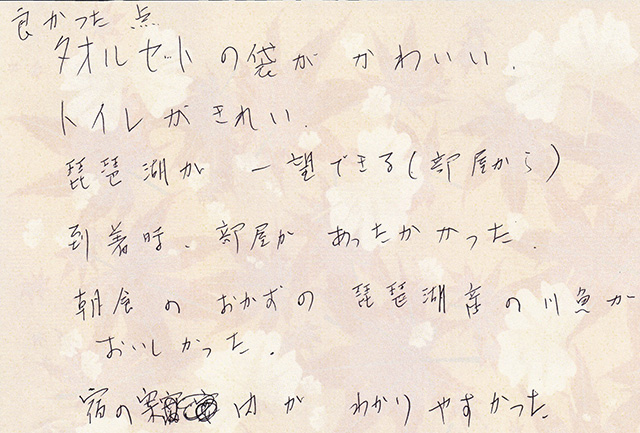 良かった点
タオルセットの袋がかわいい.
トイレがきれい.
琵琶湖が一望できる(部屋から)
到着時、部屋があったかかった.
朝食のおかずの琵琶湖産の川魚が
おいしかった.
宿の案内がわかりやすかった